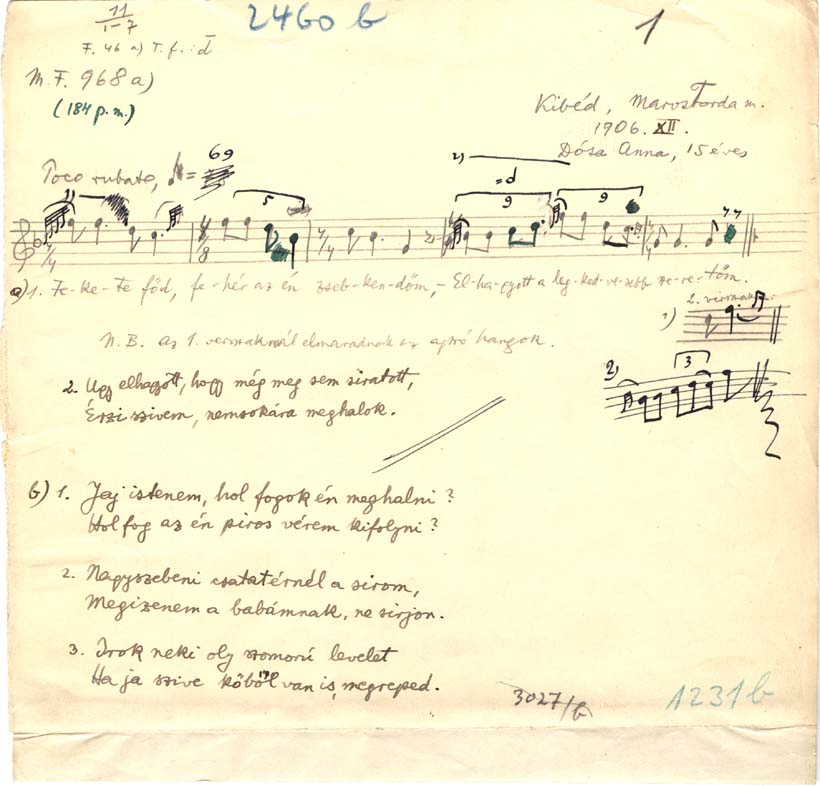 11
I-7
2460 b
1
F. 46 a) T. f. : d
M. F. 968 a)
(184 p. m.)
Kibéd, MarosTorda m.
1906. XII.
Dósa Anna, 15 éves
Poco rubato, = 69
1)
5
2)
= d
9
9
a) 1. Fe-ke-te föd, fe-hér az én zseb-ken-dőm, - El-ha-gyott a leg-ked-ve-sebb sze-re-tőm.
1) 2. versszak:
N. B. az 1. versszaknál elmaradnak az apró hangok.
2) 3
2. Ugy elhagyott, hogy még meg sem siratott,
Érzi szivem, nemsokára meghalok.
b) 1. Jaj istenem, hol fogok én meghalni?
Hol fog az én piros vérem kifolyni?
2. Nagyszebeni csatatérnél a sirom,
Megizenem a babámnak, ne sirjon.
3. Irok neki oly szomorú levelet
Ha ja szive kőből van is, megreped.
3027/b
1231 b